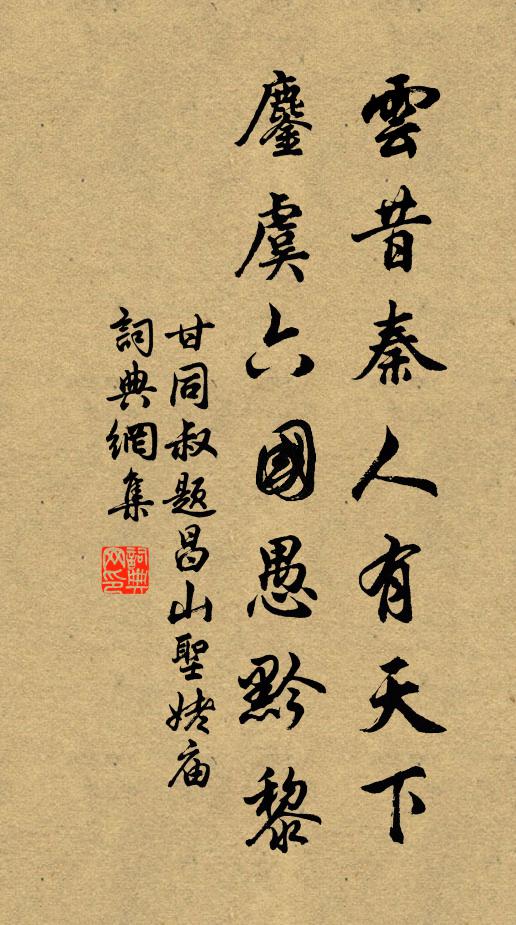 雲昔秦人有天下
鏖虞六國愚黔黎
甘同叔題昌山聖姥庙
詞典網集
詞典网印